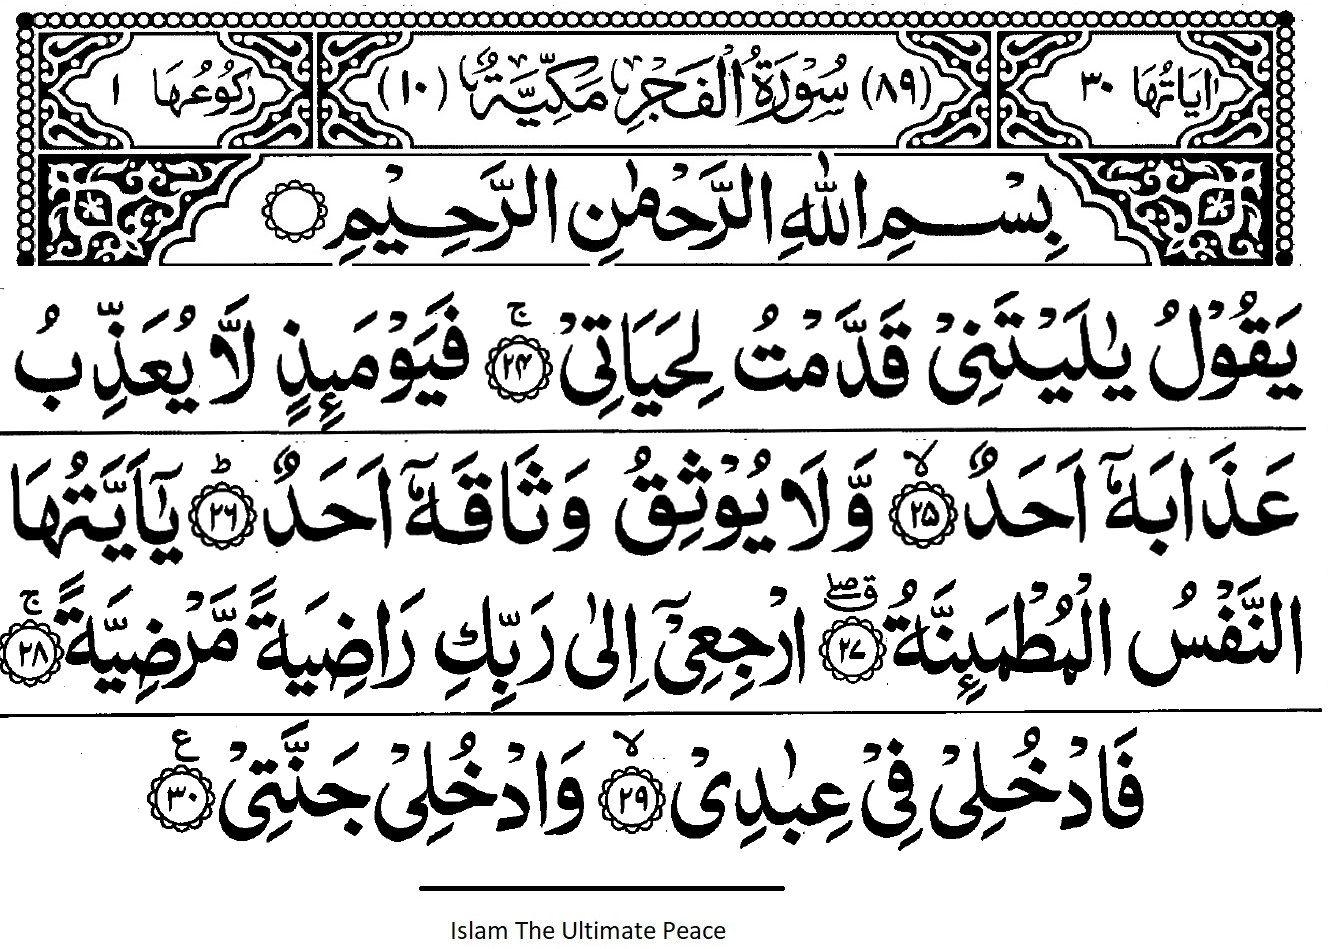 اٰيَاتُهَا ٣٠ (٨٩) سُوْرَةُ الْفَجْرِ مَكِّيَّةٌ (١٠) رُكُوْعُهَا ١
بِسْمِ اللّٰهِ الرَّحْمٰنِ الرَّحِيْمِ
يَقُوْلُ يٰلَيْتَنِيْ قَدَّمْتُ لِحَيَاتِيْ ۚ ﴿۲۴﴾ فَيَوْمَئِذٍ لَّا يُعَذِّبُ
عَذَابَهٗۤ اَحَدٌ ۙ ﴿۲۵﴾ وَّلَا يُوْثِقُ وَثَاقَهٗۤ اَحَدٌ ؕ ﴿۲۶﴾ يٰۤاَيَّتُهَا
النَّفْسُ الْمُطْمَئِنَّةُ ۖۗ ﴿۲۷﴾ ارْجِعِيْۤ اِلٰى رَبِّكِ رَاضِيَةً مَّرْضِيَّةً ۚ ﴿۲۸﴾
فَادْخُلِيْ فِيْ عِبٰدِيْ ۙ ﴿۲۹﴾ وَادْخُلِيْ جَنَّتِيْ ع ﴿۳۰﴾
Islam The Ultimate Peace